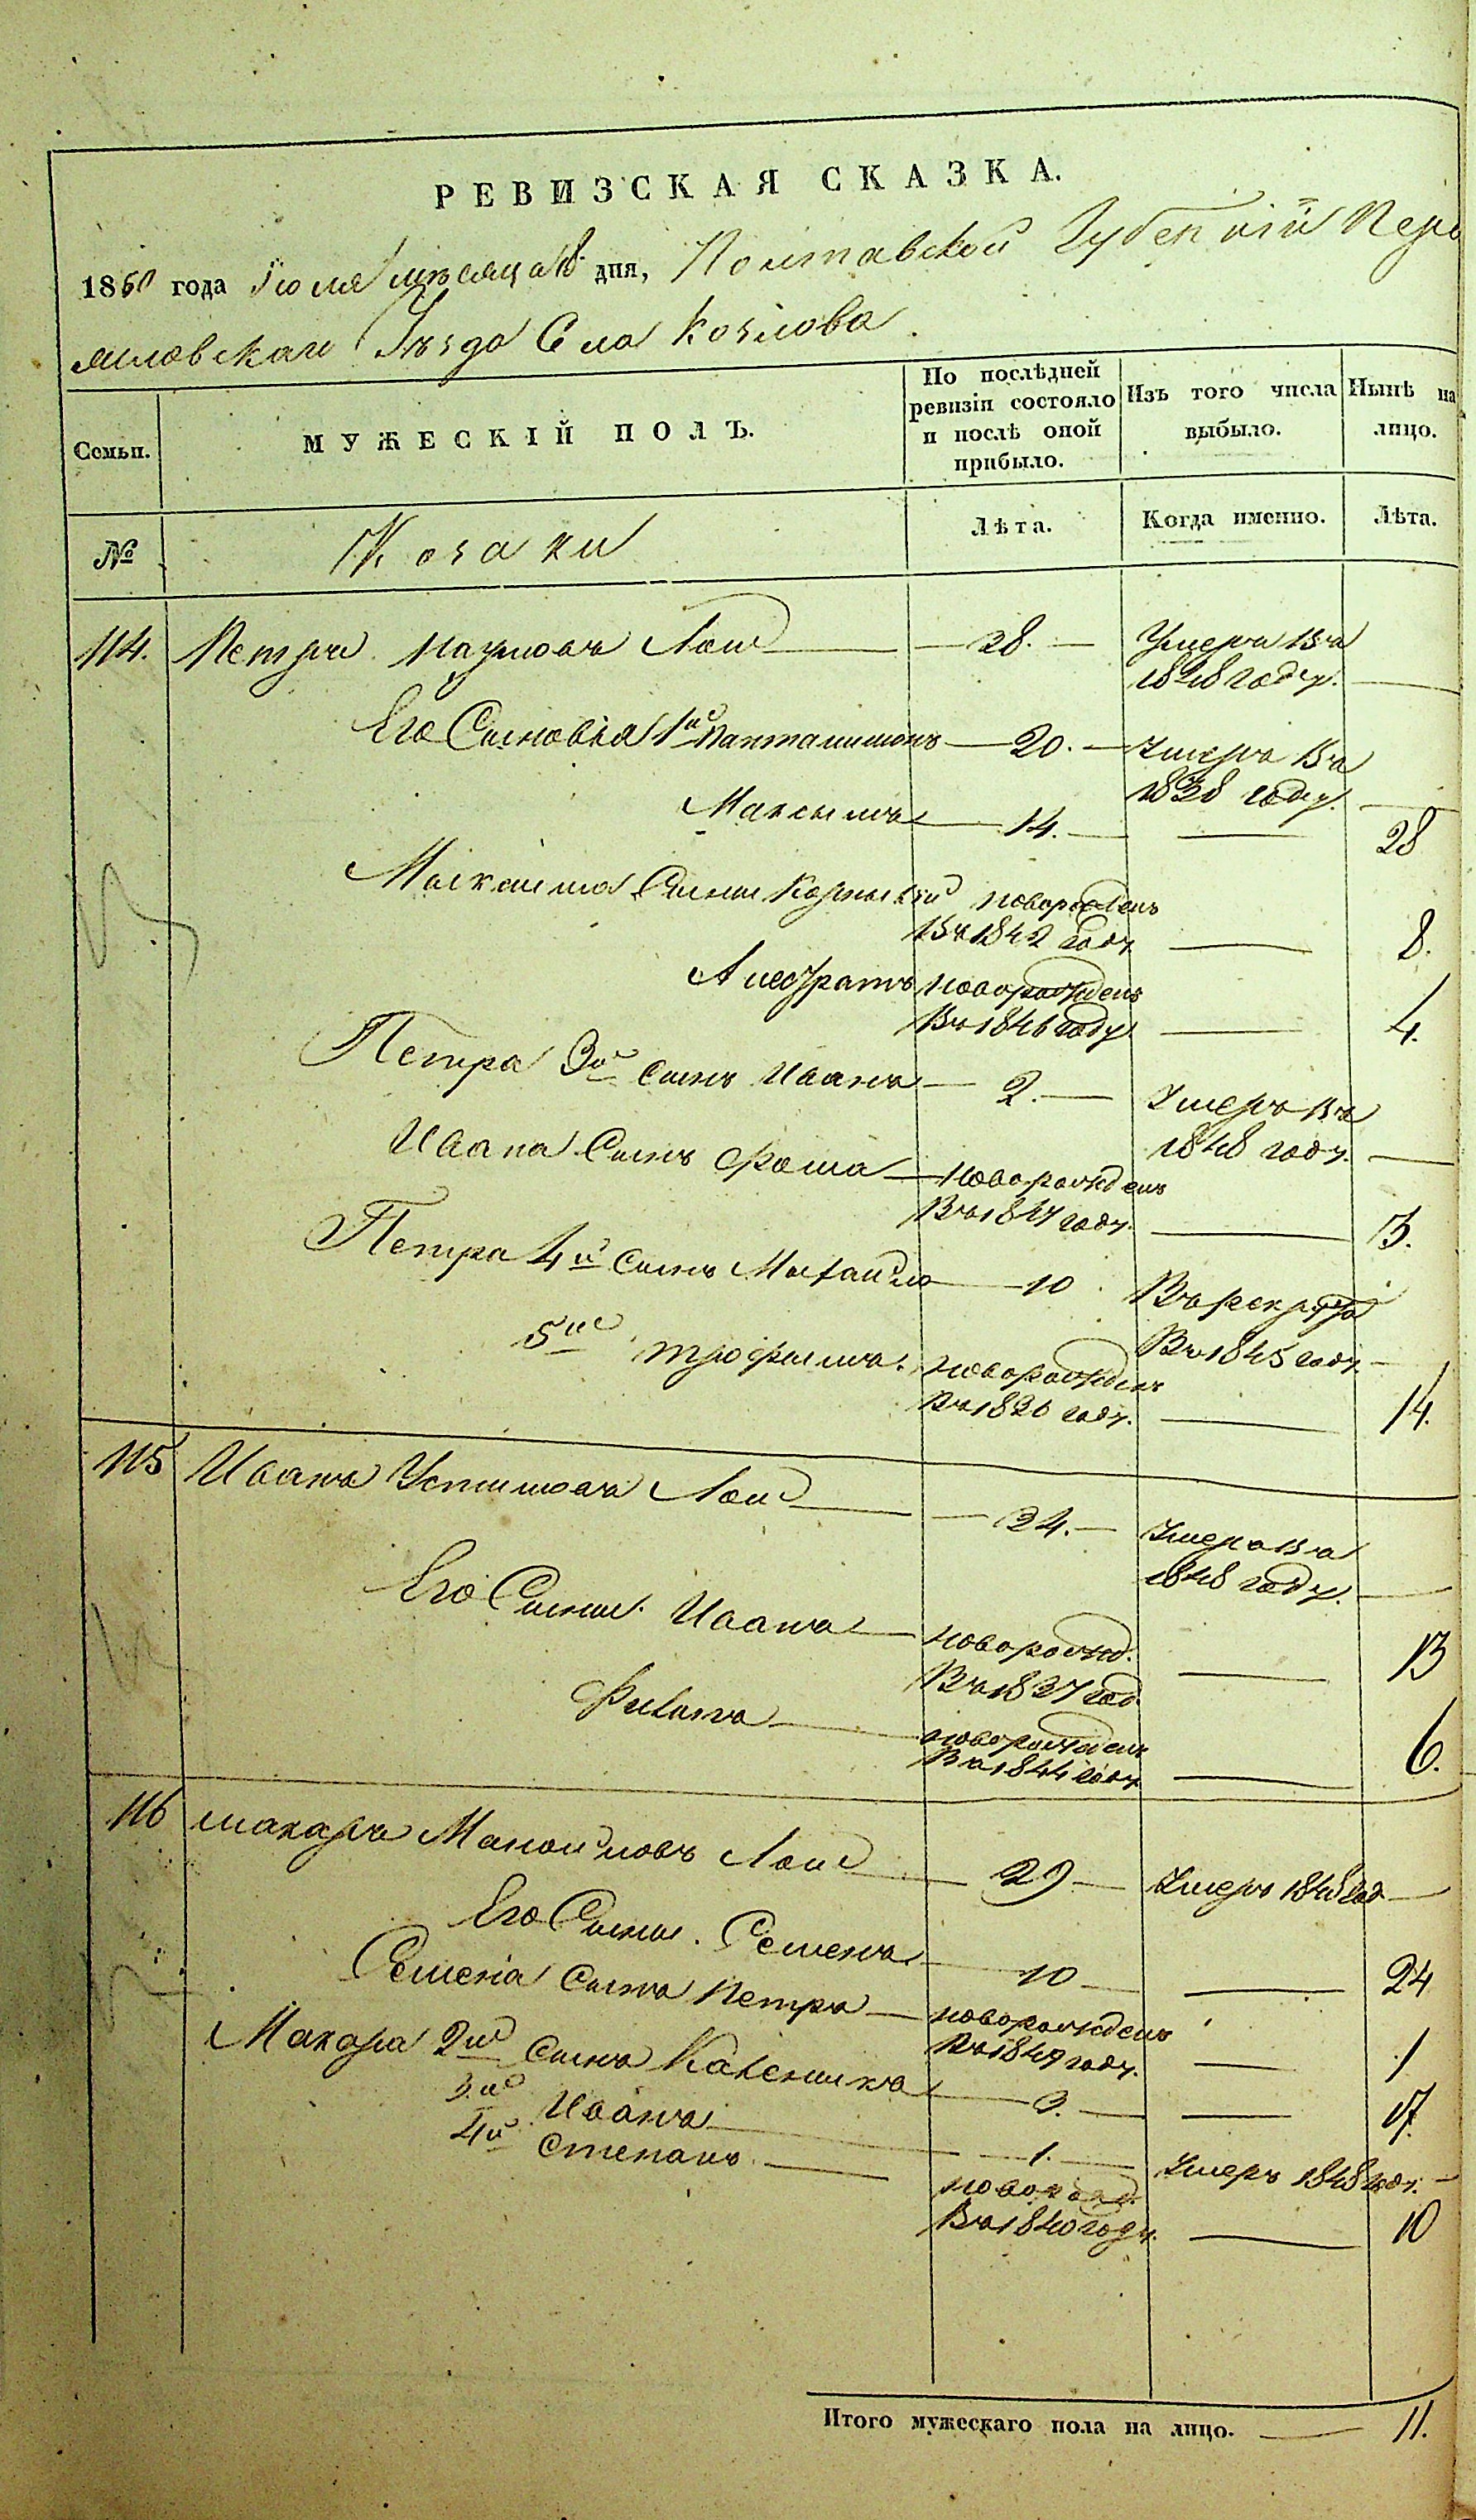 РЕВИЗСКАЯ СКАЗКА.
1850 года Іюля месяца 18 дня, Полтавской Губерніи Пере
яславскаго Уезда Села Козлова
Семьи. МУЖЕСКІЙ ПОЛЪ. По послѣдней ревизіи состояло и послѣ оной прибыло. Изъ того числа выбыло. Нынѣ на лицо.
№ Козаки Лѣта. Когда именно. Лѣта.
114. Петръ Наумовъ Лой 38. Умеръ въ
1848 году.
Его Сыновья 1й Пантелимонъ 20. Умеръ въ
1838 году.
Максымъ 14. 28
Максима Сыны Корнылій новорожденъ
въ 1842 году 8.
Алистратъ новорожденъ
въ 1846 году 4.
Петра 3й сынъ Иванъ 2. Умеръ въ
1848 году.
Ивана Сынъ Фома новорожденъ
въ 1847 году. 3.
Петра 4й сынъ Михайло 10 Въ рекрутъ
въ 1845 году.
5й Трофымъ новорожденъ
въ 1836 году. 14.
115 Иванъ Устимовъ Лой 34. Умеръ въ
1848 году.
Его Сыны Иванъ новорожд.
въ 1837 год. 13
Фиlипъ новорожденъ
въ 1844 году 6.
116 Макаръ Мануйловъ Лой 29 Умеръ 1848 год.
Его Сыны. Семенъ 10 24
Семена Сынъ Петро новорожденъ
въ 1849 году. 1
Макара 2й сынъ Каленикъ 3. 17.
3й Иванъ 1. Умеръ 1848 году.
4й Степанъ новорожд.
въ 1840 году. 10
Итого мужескаго пола на лицо. 11.